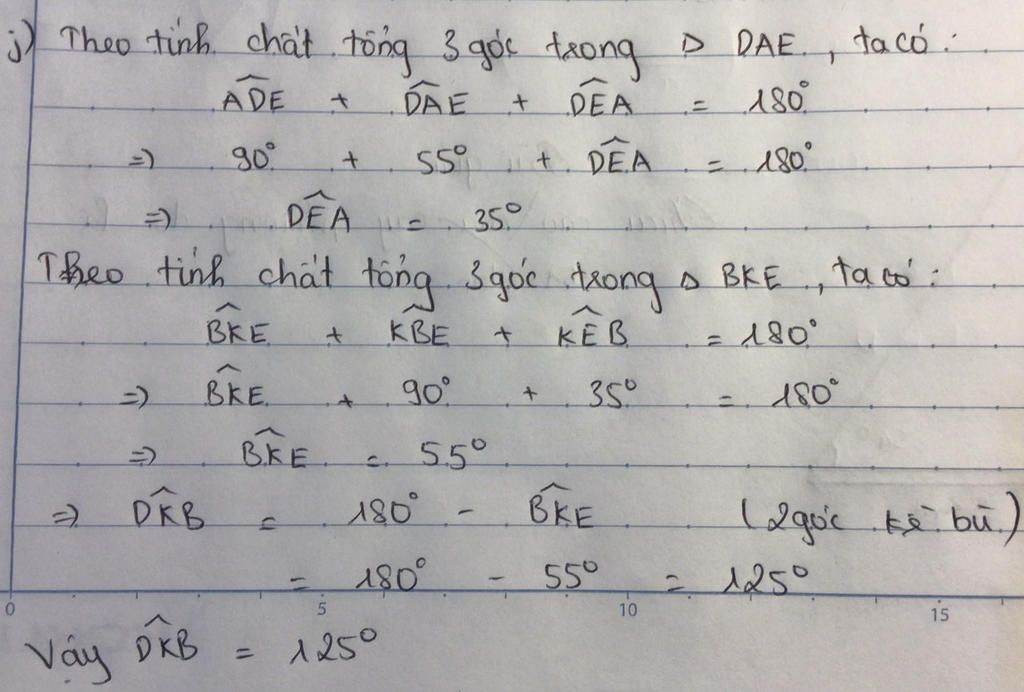 j) Theo tính chất tổng 3 góc trong △ DAE, ta có:
\widehat{ADE} + \widehat{DAE} + \widehat{DEA} = 180°
=> 90° + 55° + \widehat{DEA} = 180°
=> \widehat{DEA} = 35°
Theo tính chất tổng 3 góc trong △ BKE, ta có:
\widehat{BKE} + \widehat{KBE} + \widehat{KEB} = 180°
=> \widehat{BKE} + 90° + 35° = 180°
=> \widehat{BKE} = 55°
=> \widehat{DKB} = 180° - \widehat{BKE} (2 góc kề bù)
= 180° - 55° = 125°
0 5 10 15
Vậy \widehat{DKB} = 125°